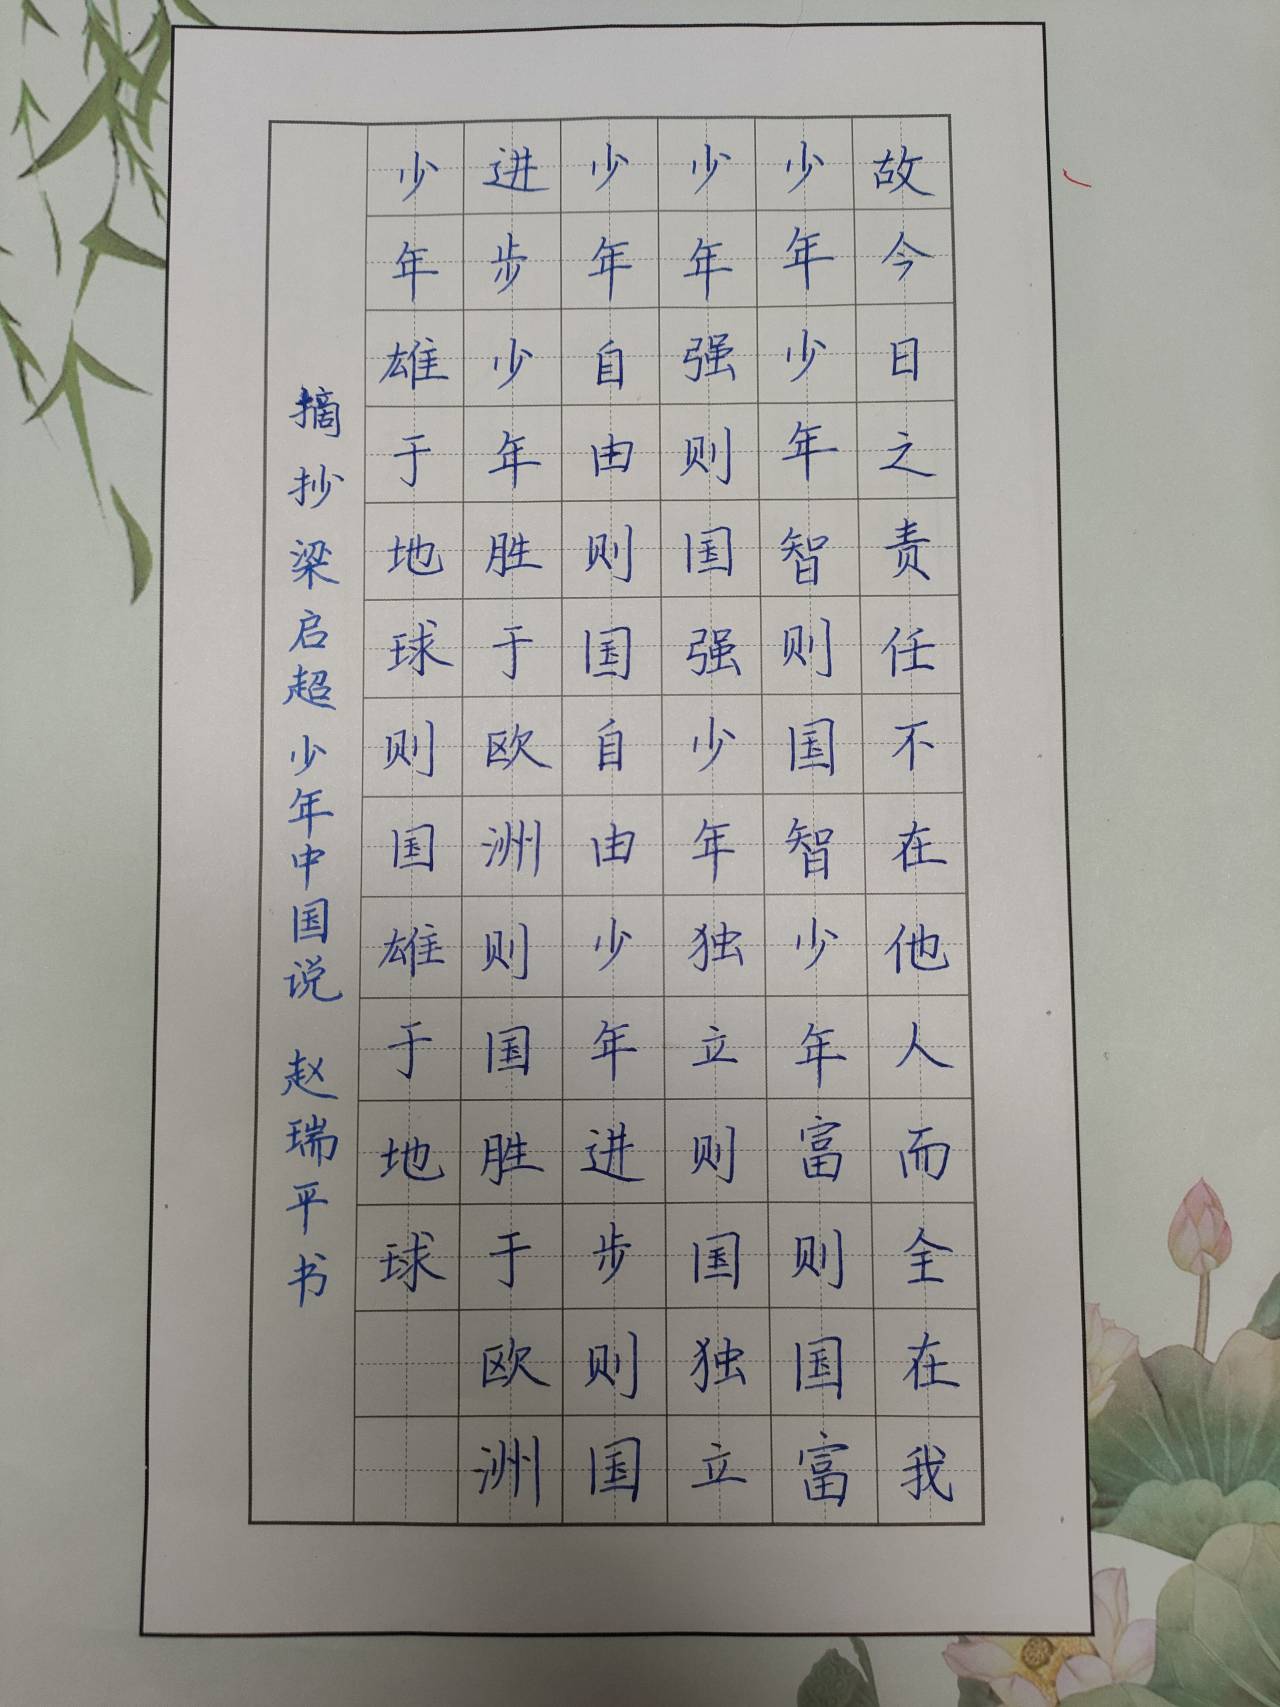 故今日之责任不在他人而全在我
少年少年智则国智少年富则国富
少年强则国强少年独立则国独立
少年自由则国自由少年进步则国
进步少年胜于欧洲则国胜于欧洲
少年雄于地球则国雄于地球
摘抄梁启超少年中国说 赵瑞平书